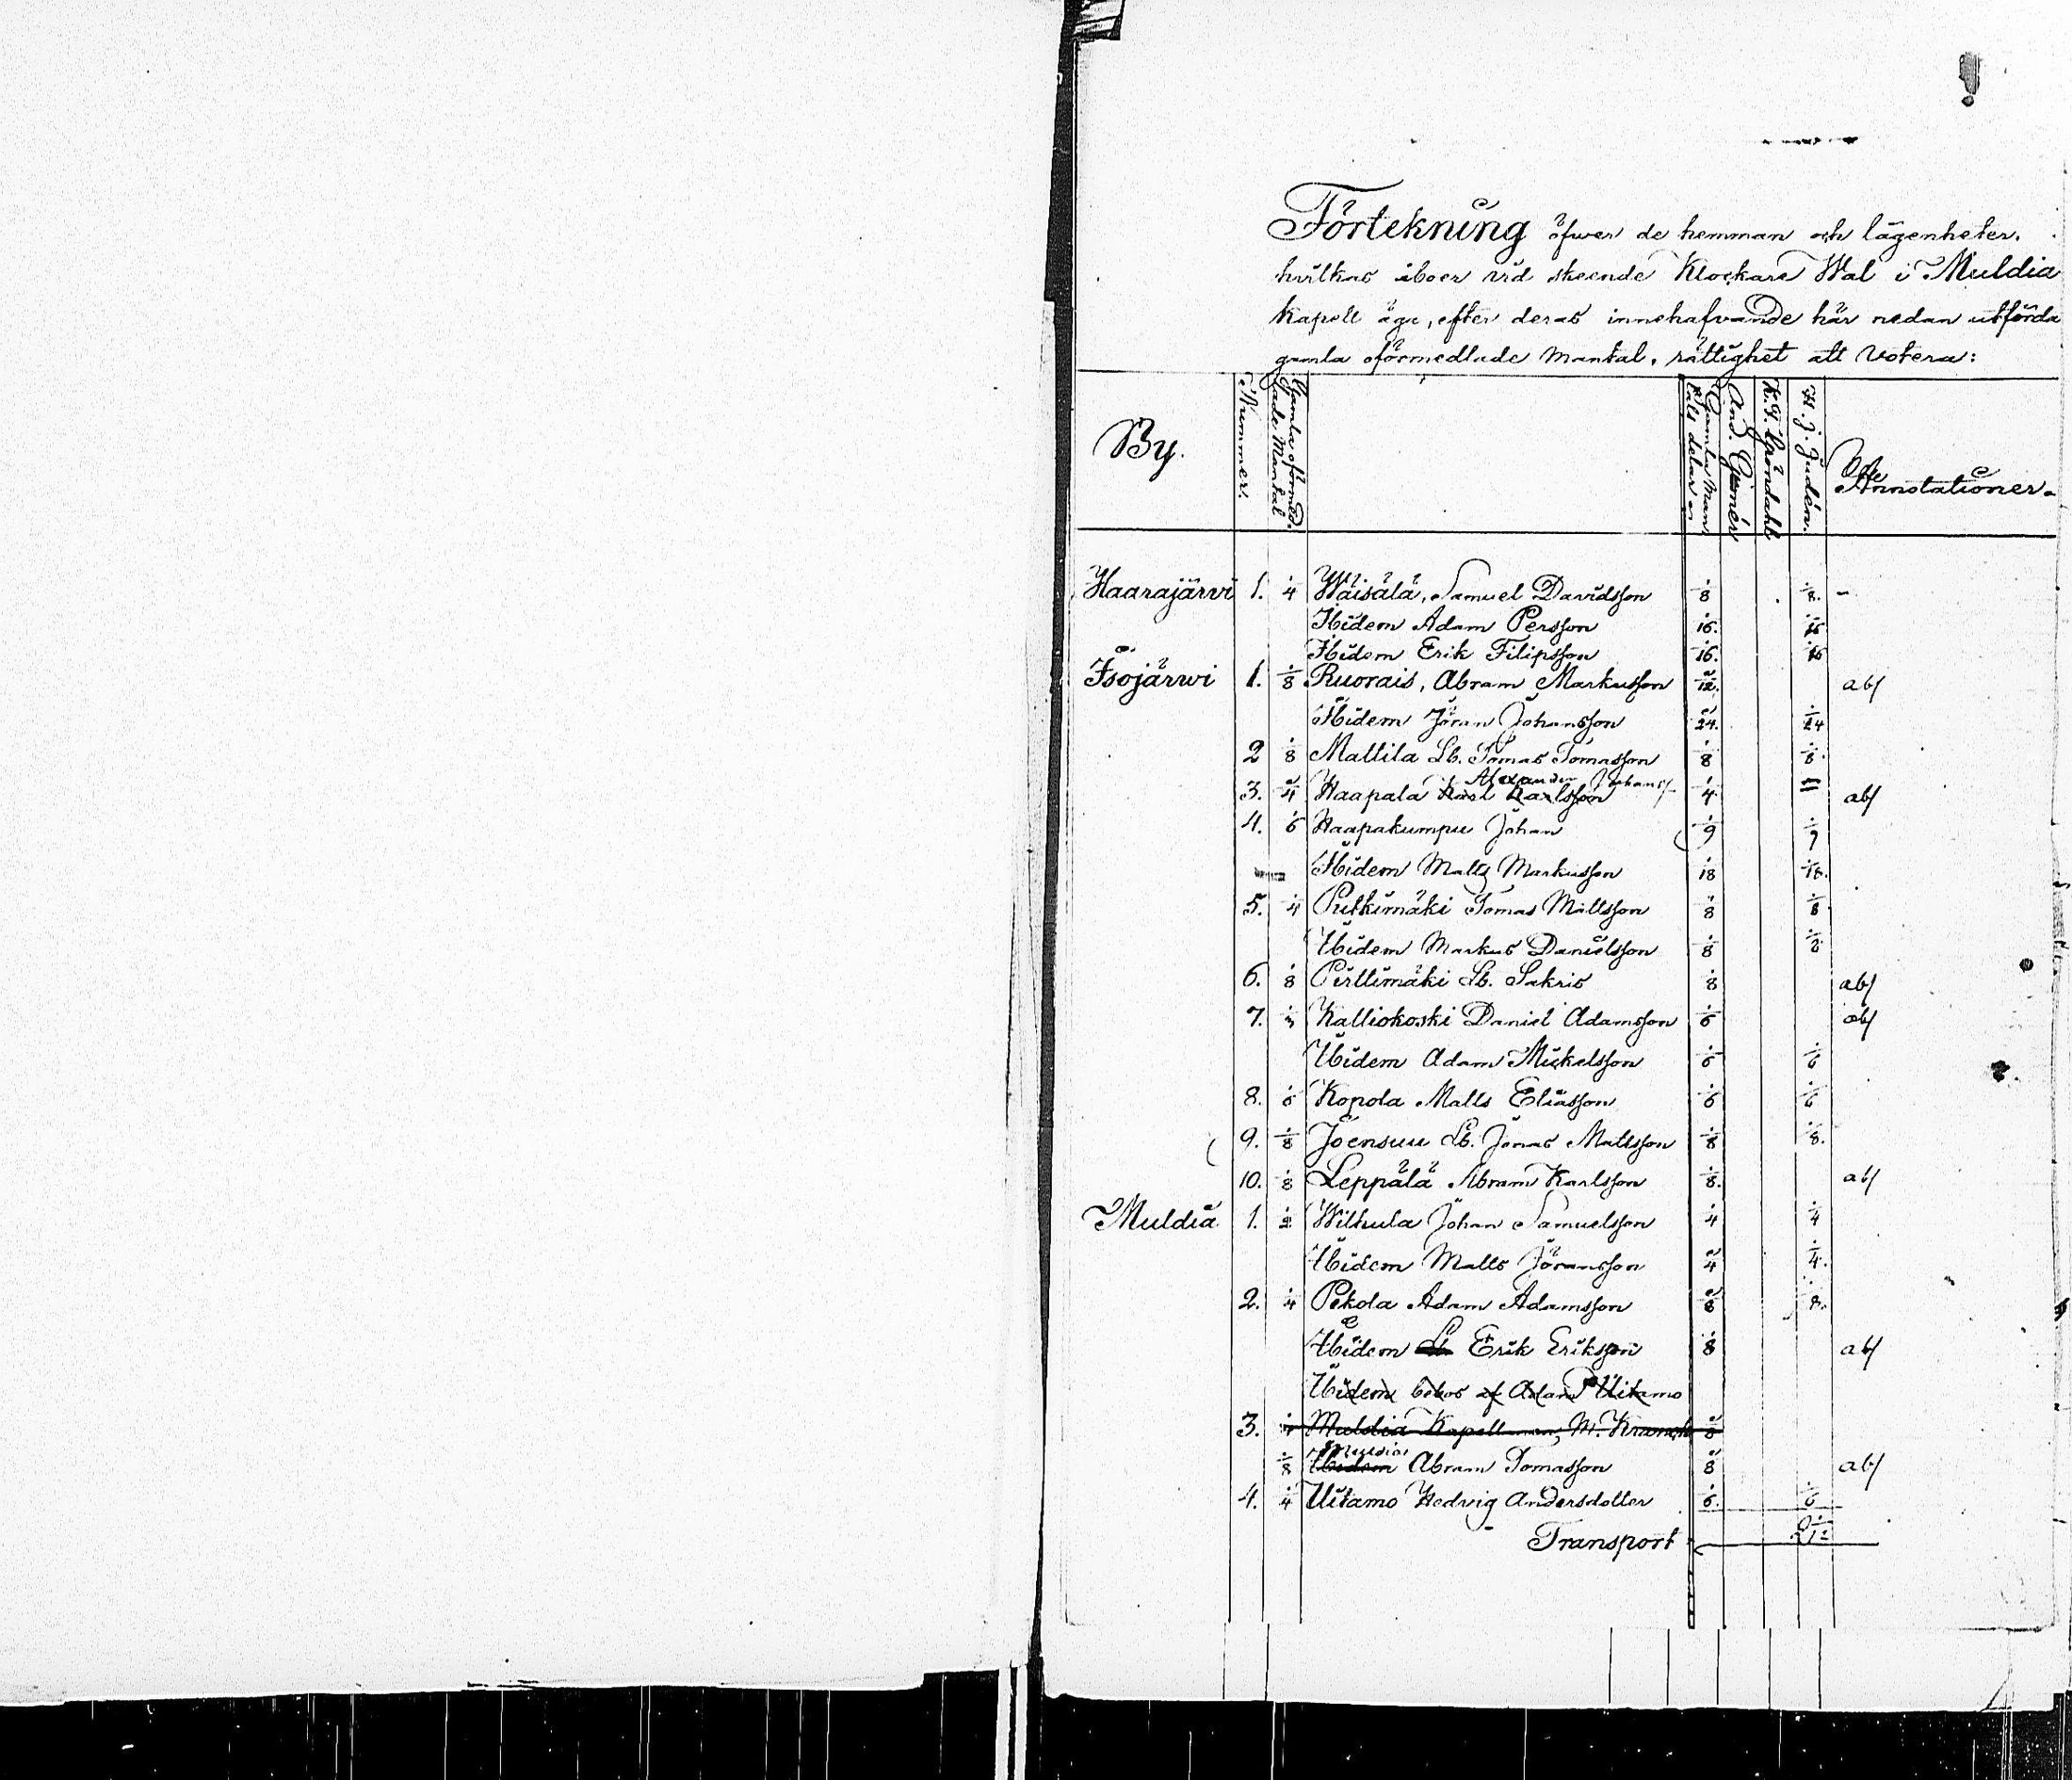 Förtekning öfwer de hemman och lägenheter,
hvilkas åboer vid skeende Klockare Wal i Muldia
kapell äga, efter deras innehafvande här nedan utförda
gamla oförmedlade mantal, rättighet att Votera:
By. Nummer. Gamla oförmed- lade Mantal Gamla Man- tals delar And. K.G. Gröndahl H. J. Judén. Annotationer.
Haarajärwi 1. 1/4 Wäisälä, Samuel Davidsson 1/8 1/8. -
Ibidem Adam Persson 1/16. 1/16
Ibidem Erik Filipsson 1/16. 1/16
Isojärwi 1. 1/8 Ruorais, Abram Markusson 1/12. abs
Ibidem Jöran Johansson 1/24. 1/24
2 1/8 Mattila Lb. Tomas Tomasson 1/8 1/8.
Alexander Johanss.
3. 1/4 Haapala Karl Karlsson 1/4. = abs
4. 1/6 Haapakumpu Johan 1/9 1/9
Ibidem Matts Markusson 1/18 1/18.
5. 1/4 Putkimäki Tomas Mattsson 1/8 1/8.
Ibidem Markus Danielsson 1/8 1/8
6. 1/8 Pirttimäki Lb. Sakris 1/8 abs
7. 1/3 Kalliokoski Daniel Adamsson 1/6 abs
Ibidem Adam Mickelsson 1/6 1/6
8. 1/6 Kopola Matts Eliasson 1/6 1/6
9. 1/8 Joensuu Lb. Jonas Mattsson 1/8 1/8.
10. 1/8 Leppälä Abram Karlsson 1/8. abs
Muldia 1. 1/2 Wilhula Johan Samuelsson 1/4 1/4
Ibidem Matts Jöransson 1/4 1/4.
2. 1/4 Pekola Adam Adamsson 1/8 1/8.
Ibidem Lb. Erik Eriksson 1/8 abs
Ibidem bebos af Adam Uitamo
3. 1/4 Muldia Kapellman, M. 1/8
Muldia
1/8 Ibidem Abram Tomasson 1/8 abs
4. 1/4 Uitamo Hedvig Andersdotter 1/6. 1/6
Transport 2 1/12